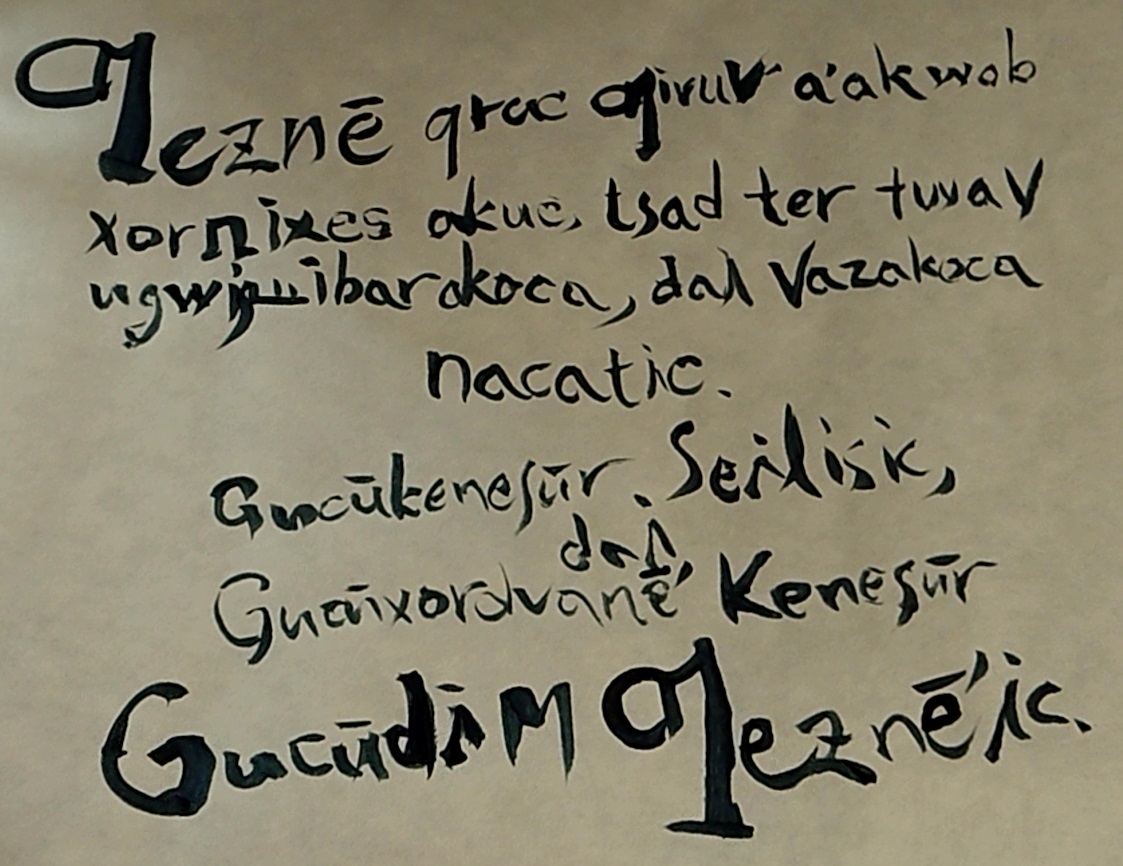 Qeznē qrac qiruv a'akwob
xorņixes akuc, tsad ter tuvay
ugwjuibarakoca, dal Vazakoca
nacatic.
Gucūkeneşūr. Serlisic,
dal,
Gucūxordvanē' Keneşūr
Gucūdim Qeznē'ic.